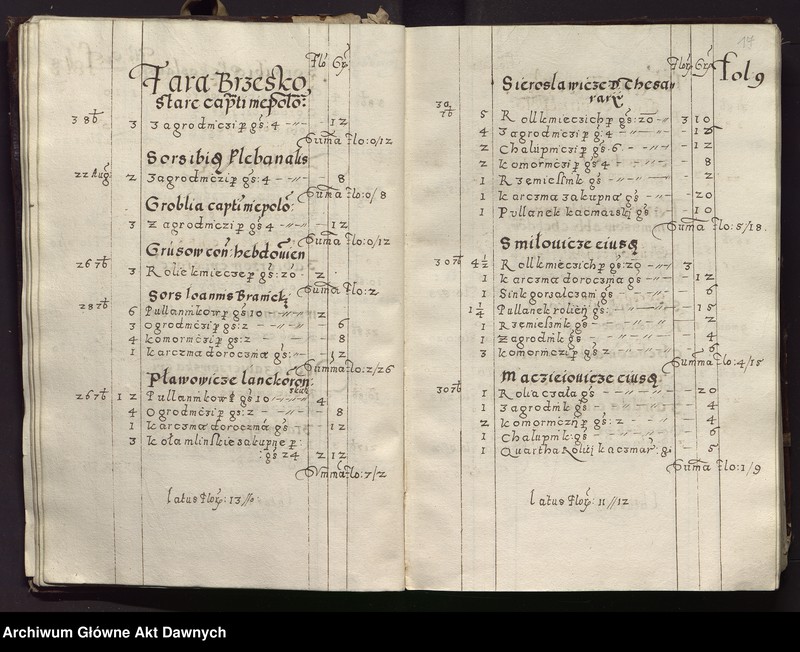 Flo: Gr:
Fara Brzesko,
Stare capti: nepoło:
3 Zagrodniczi p gs: 4 12
Suma Flo: 0/12
Sors ibiq Plebanalis
22 Aug: 2 Zagrodniczi p gs: 4 8
Suma Flo: 0/8
Groblia capti: nepoło:
3 Zagrodniczi p gs: 4 12
Suma Flo: 0/12
Grusow con: hebdowien
3 Rolie kmieczie p gs: 20 2
Suma Flo: 2
Sors Ioannis Branick:
6 Pullannikow p gs: 10 2
3 Ogrodniczi p gs: 2 6
4 komorniczi p gs: 2 8
1 karczma doroczna gs: 12
Summa Flo: 2/26
Pławowicze lanckoron:
12 Pullannikow gs 10 4
4 Ogrodniczi p gs: 2 8
1 karczma doroczna gs 12
3 koła mlinskie zakupne p:
gs 24 2 12
Summa Flo: 7/2
latus Flor: 13//0
17
Flor: Gr: fol 9
Sieroslawicze D Thesau
rarii
5 Roll kmieczich p gs: 20 3 10
4 Zagrodniczi p g: 4
2 Chalupniczi p gs. 6 12
2 komorniczi p gs 4 8
1 Rzemieslnik gs 2
1 karczma zakupna gs 20
1 Pullanek kacmarski gs 10
Suma Flo: 5/18.
Smiłowicze eiusq
4 1/2 Roll kmieczich p gs: 20 3
1 karczma doroczna gs 12
1 gs 6
1 1/4 Pullanek gs: 15
1 Rzemieslnik gs 2
1 Zagrodnik gs 4
3 komorniczi p gs 2 6
Summa Flo: 4/15
Macziejowicze eiusq
1 Rolia czała gs 20
1 Zagrodnik gs 4
2 komorniczi p gs: 2 4
1 Chalupnik: gs 6
1 Quartha Rolii kaczmar: g: 5
Suma Flo: 1/9
latus Flor: 11//12
Archiwum Główne Akt Dawnych